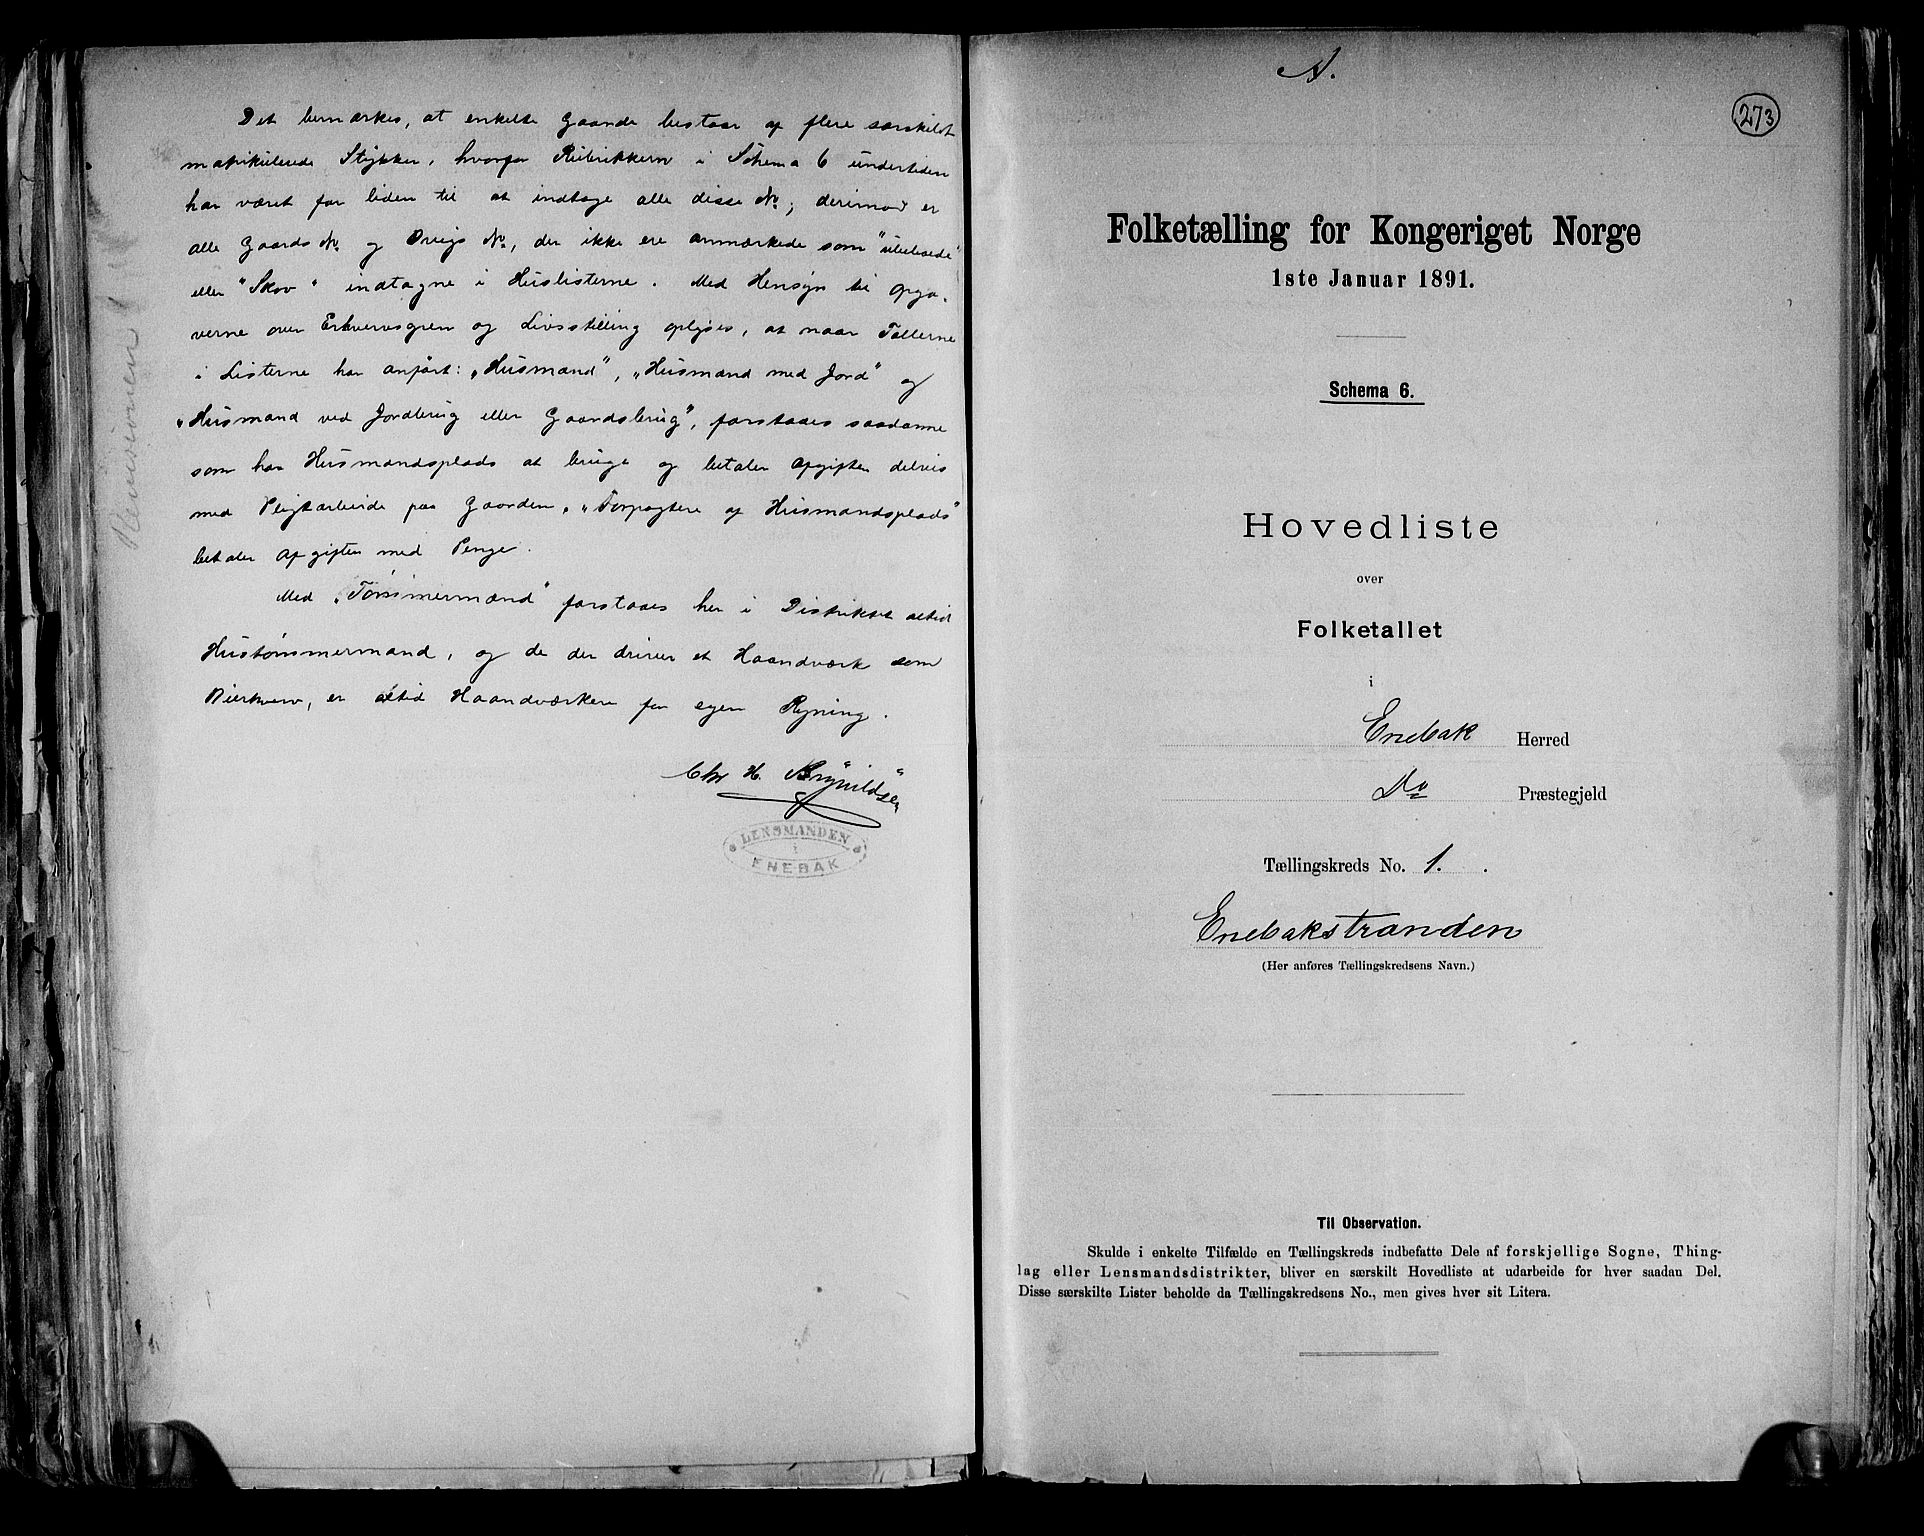 Det bemærkes, at enkelte Gaarde bestaar af flere særskilt
matrikulerede Stykker, hvorfor Rubrikkerne i Schema 6 undertiden
har været for liden til at indtage alle disse No; derimod er
alle Gaards No og Brugs No, der ikke ere anmærkede som "ubeboede"
eller "Skov" indtagne i Huslisterne. Med Hensyn til Opga-
verne over Erhvervsgren og Livsstilling oplyses, at naar Tællerne
i Listerne har anført: "Husmand", "Husmand med Jord" og
"Husmand ved Jordbrug eller Gaardsbrug", forstaaes saadanne
som har Husmandsplads at bruge og betaler Afgiften delvis
med Pligtarbeide paa Gaarden. "Forpagtere af Husmandsplads"
betaler Afgiften med Penge.
Med "Tømmermænd" forstaaes her i Distriktet altid
Hustømmermænd, og de der driver et Haandværk som
Bierhverv, er altid Haandværkere for egen Regning.
Chr H. Brynildsen
LENSMANDEN
i
ENEBAK
Revisionen
N.
273
Folketælling for Kongeriget Norge
1ste Januar 1891.
Schema 6.
Hovedliste
over
Folketallet
i
Enebak Herred
Do Præstegjeld
Tællingskreds No. 1.
Enebakstranden
(Her anføres Tællingskredsens Navn.)
Til Observation.
Skulde i enkelte Tilfælde en Tællingskreds indbefatte Dele af forskjellige Sogne, Thing-
lag eller Lensmandsdistrikter, bliver en særskilt Hovedliste at udarbeide for hver saadan Del.
Disse særskilte Lister beholde da Tællingskredsens No., men gives hver sit Litera.